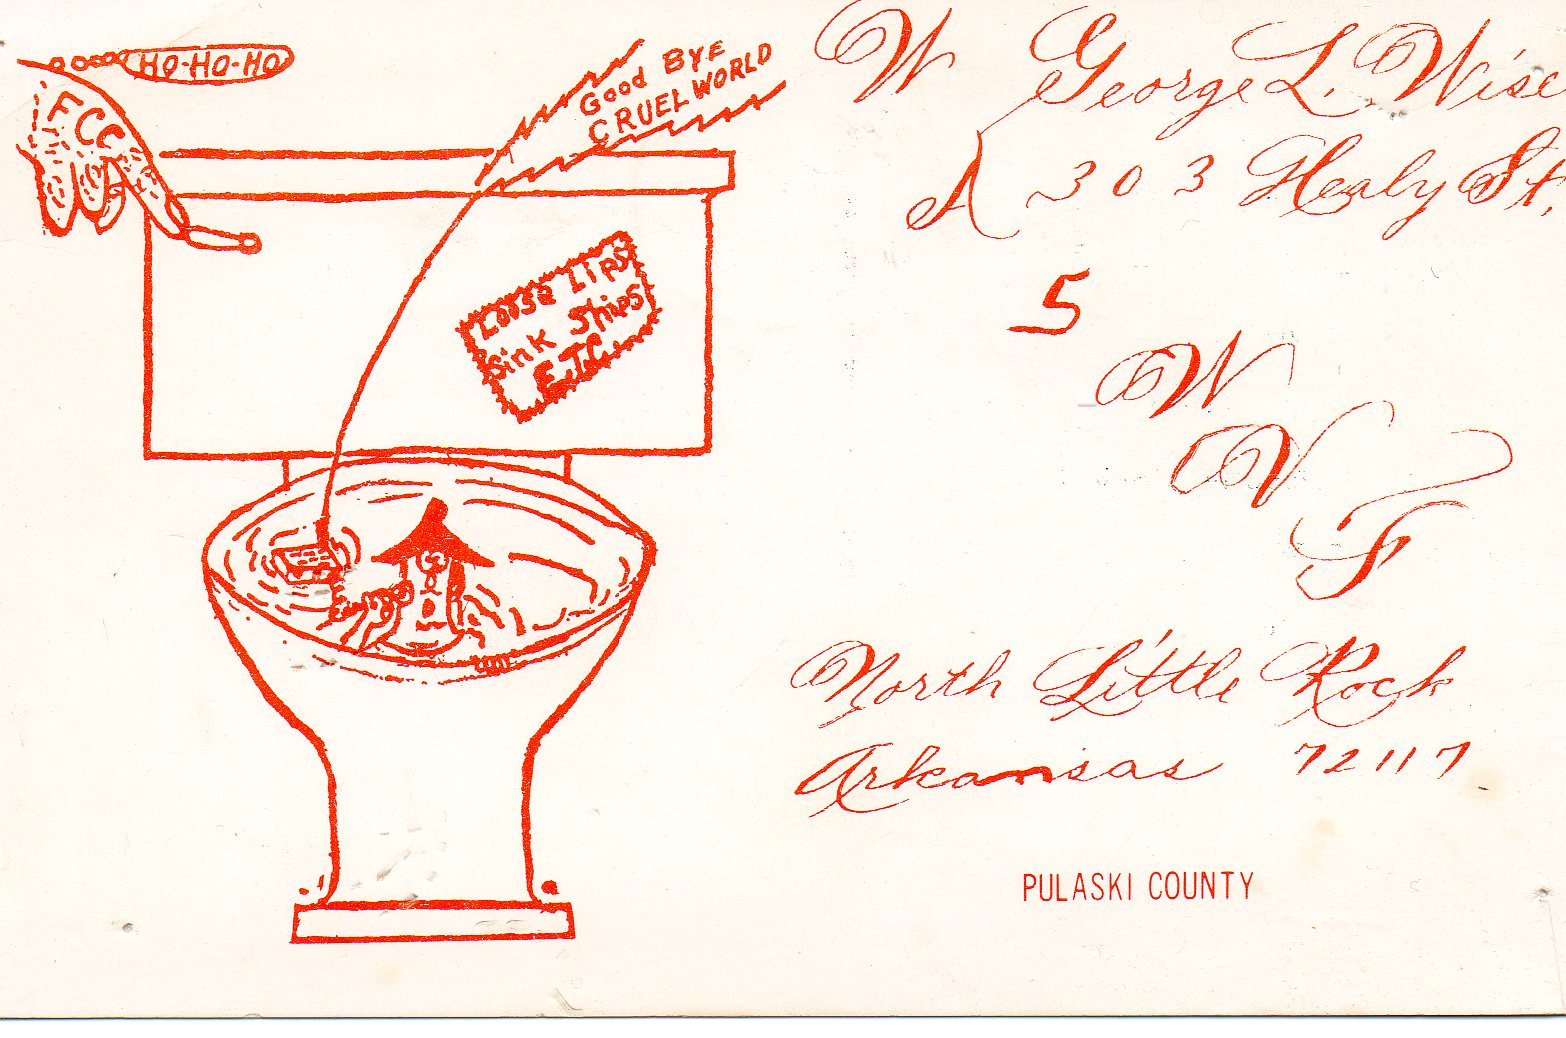 HO-HO-HO
FCC
Good BYE
CRUEL WORLD
Loose Lips
Sink Ships
E.T.C.
W
A
5
W
V
F
George L. Wise
303 Healy St.
North Little Rock
Arkansas 72117
PULASKI COUNTY